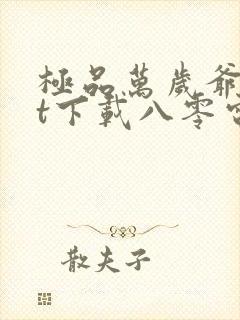 極品萬歲爺
t下載八零
散夫子